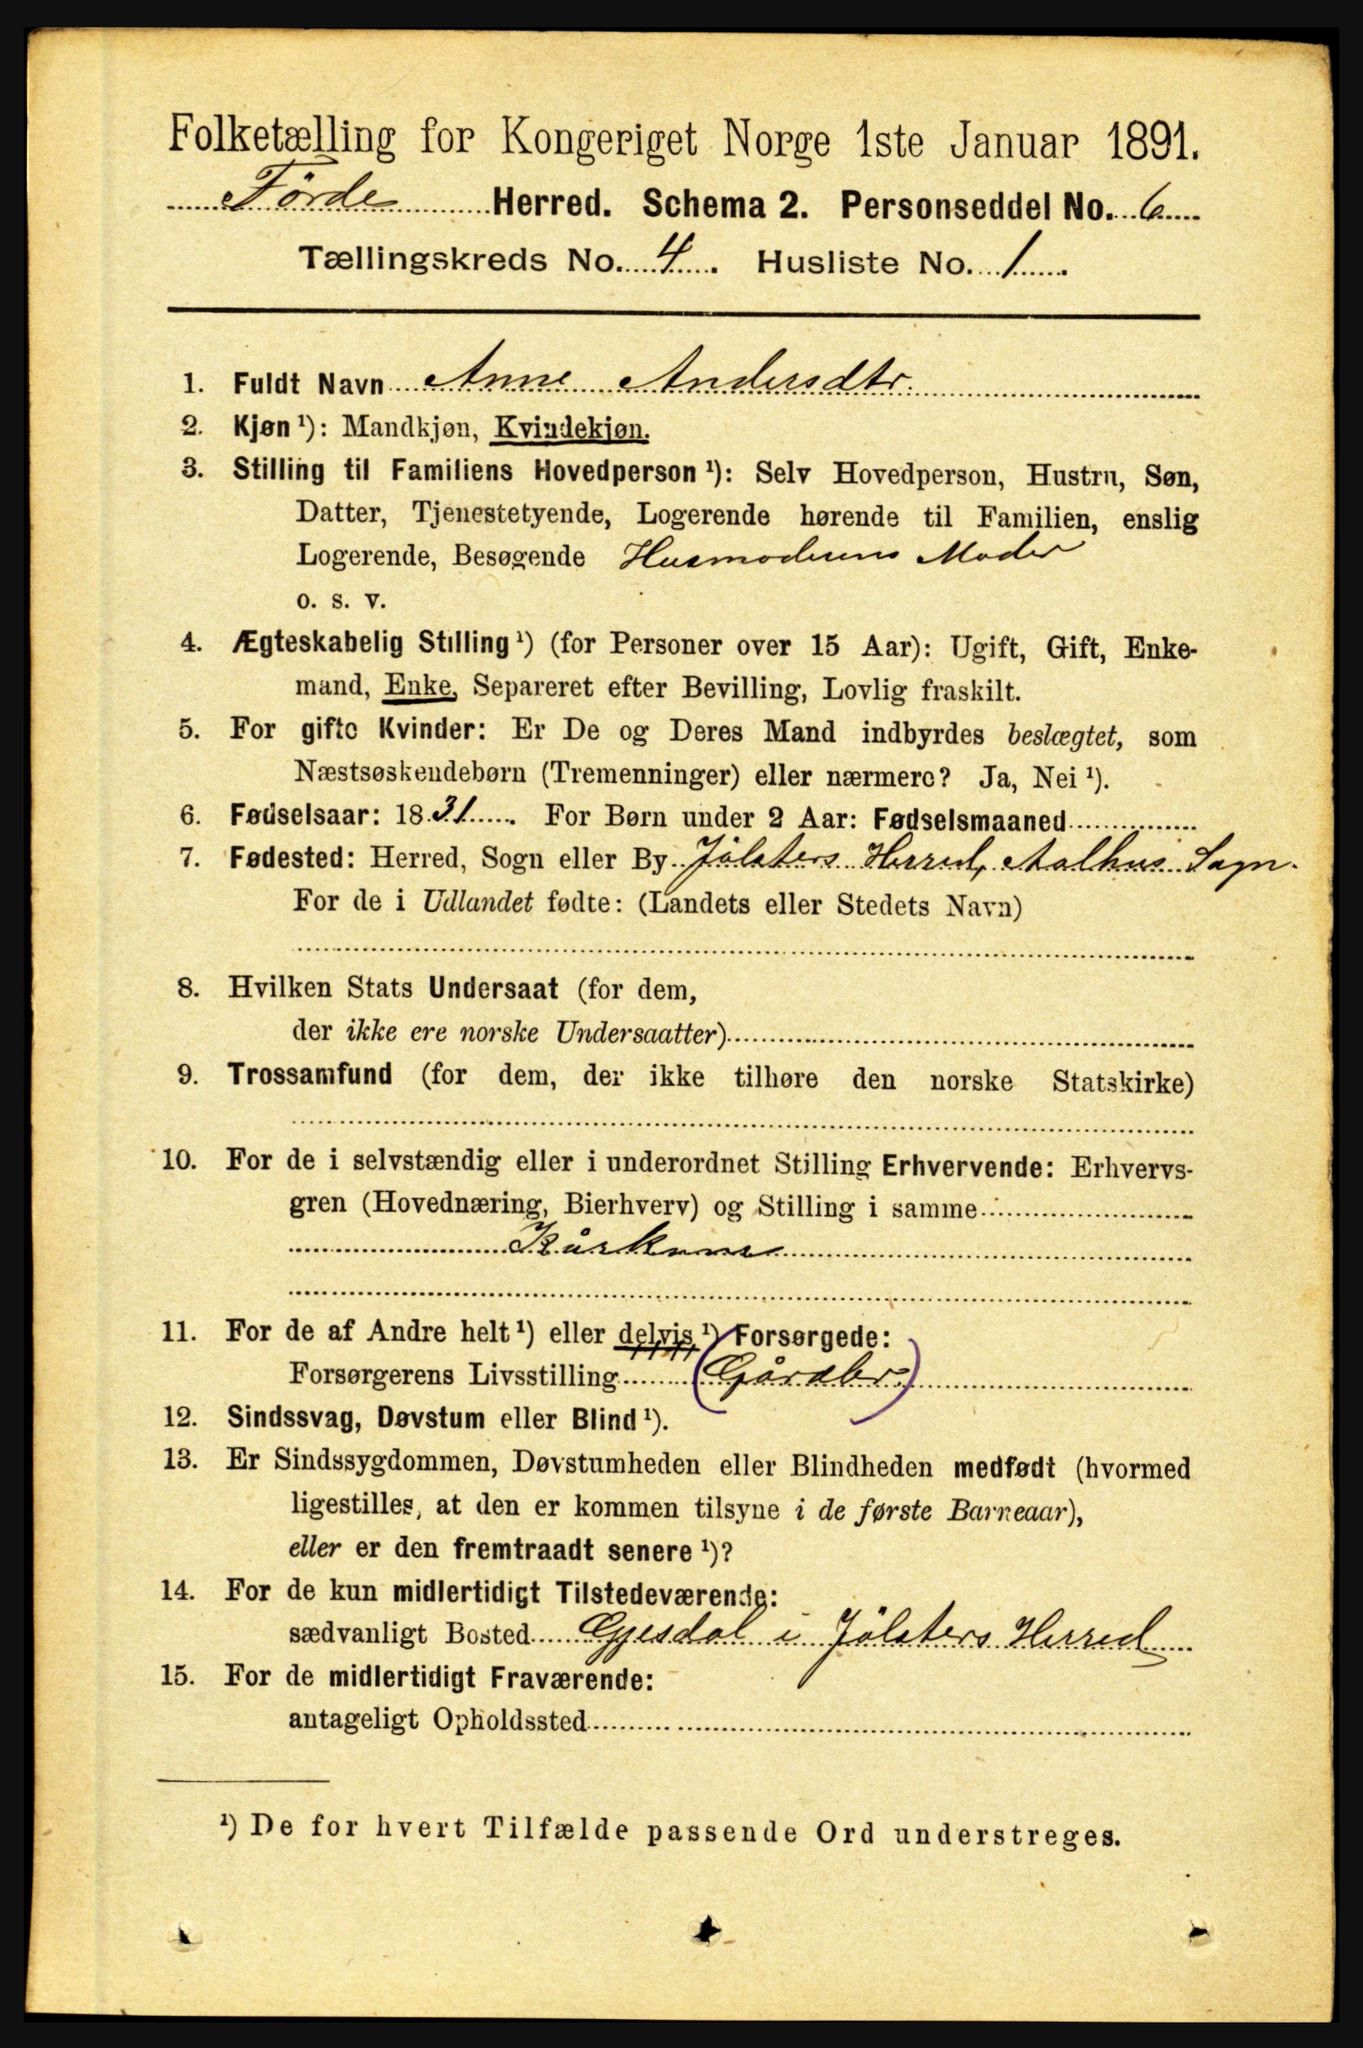 Folketælling for Kongeriget Norge 1ste Januar 1891.
Förde Herred. Schema 2. Personseddel No. 6
Tællingskreds No. 4. Husliste No. 1
1. Fuldt Navn Anne Andersdtr.
2. Kjøn ¹): Mandkjøn, Kvindekjøn.
3. Stilling til Familiens Hovedperson ¹): Selv Hovedperson, Hustru, Søn,
Datter, Tjenestetyende, Logerende hørende til Familien, enslig
Logerende, Besøgende Husmoderens Moder
o. s. v.
4. Ægteskabelig Stilling ¹) (for Personer over 15 Aar): Ugift, Gift, Enke-
mand, Enke, Separeret efter Bevilling, Lovlig fraskilt.
5. For gifte Kvinder: Er De og Deres Mand indbyrdes beslægtet, som
Næstsøskendebørn (Tremenninger) eller nærmere? Ja, Nei ¹).
6. Fødselsaar: 1831. For Børn under 2 Aar: Fødselsmaaned
7. Fødested: Herred, Sogn eller By Jölsters Herred, Aalhus Sogn.
For de i Udlandet fødte: (Landets eller Stedets Navn)
8. Hvilken Stats Undersaat (for dem,
der ikke ere norske Undersaatter)
9. Trossamfund (for dem, der ikke tilhøre den norske Statskirke)
10. For de i selvstændig eller i underordnet Stilling Erhvervende: Erhvervs-
gren (Hovednæring, Bierhverv) og Stilling i samme
Kårkone
11. For de af Andre helt ¹) eller delvis ¹) Forsørgede:
Forsørgerens Livsstilling (Gårdbr.)
12. Sindssvag, Døvstum eller Blind ¹).
13. Er Sindssygdommen, Døvstumheden eller Blindheden medfødt (hvormed
ligestilles, at den er kommen tilsyne i de første Barneaar),
eller er den fremtraadt senere ¹)?
14. For de kun midlertidigt Tilstedeværende:
sædvanligt Bosted Gjesdal i Jölsters Herred
15. For de midlertidigt Fraværende:
antageligt Opholdssted
¹) De for hvert Tilfælde passende Ord understreges.